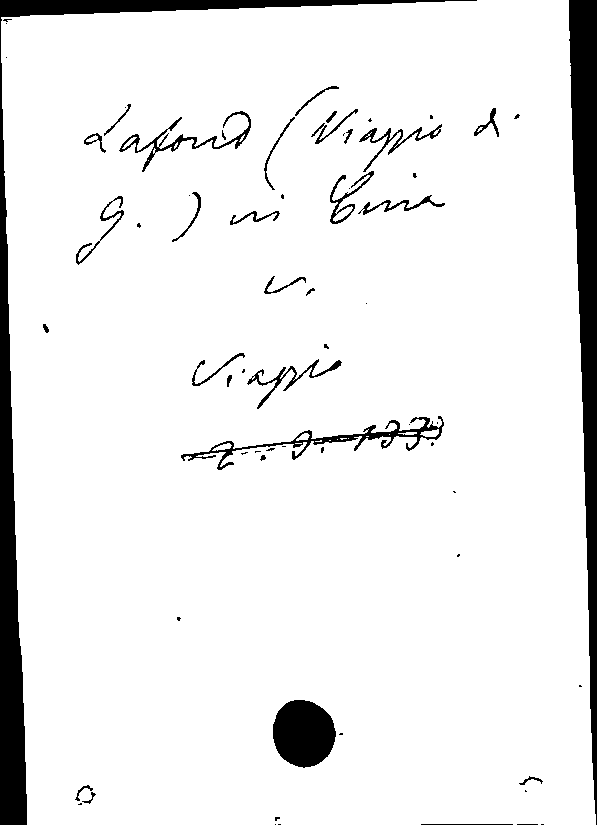 Lafond (Viaggio di
G.) in Cina
v.
Viaggio